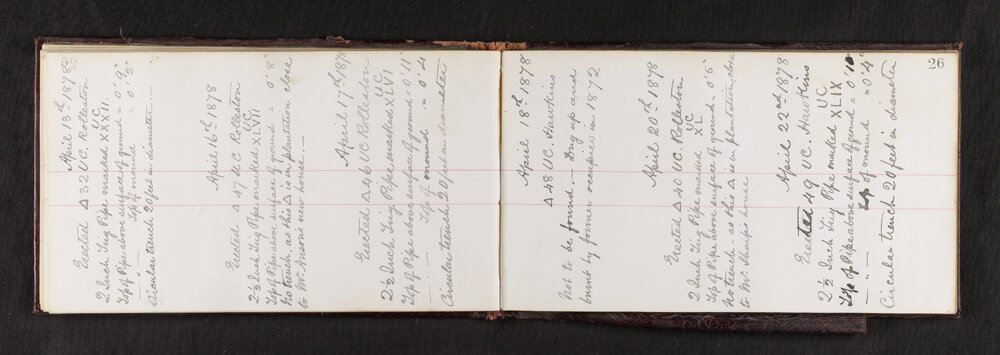 April 13th 1878
Erected △ 32 U.C. Rolleston
UC
2 Inch Tug Pipe marked XXXII.
Top of Pipe above surface of ground = 0'.9"
" - " Top of mound = 0'
Circular trench 20 feet in diameter —
April 16th 1878
Erected △ 47 UC Rolleston
UC
2½ Inch Tug Pipe marked XLVII
Top of Pipe above surface of ground = 0'.8"
No trench, as this △ is in plantation close
to Mr. new house. —
April 17th 1878
Erected △ 46 UC Rolleston
UC
2½ Inch Tug Pipe marked XLVI
Top of Pipe above surface of ground = 0'.11"
— " — Top of mound = 0'.4
Circular trench 20 feet in diameter
26
April 18th 1878
△ 48 UC. Hawkins
Not to be found. — Dug up and
burnt by former occupier in 1872
April 20th 1878
Erected △ 40 UC. Rolleston
UC
2 Inch Tug Pipe marked XL
Top of Pipe above surface of ground. 0'.5"
No trench. as this △ is in plantation close
to Mr. house
April 22nd 1878
Erected 49 UC. Hawkins
UC
2½ Inch Tug Pipe marked XLIX
Top of Pipe above surface of ground = 0'.10
— " — Top of mound = 0'.4
Circular trench 20 feet in diameter